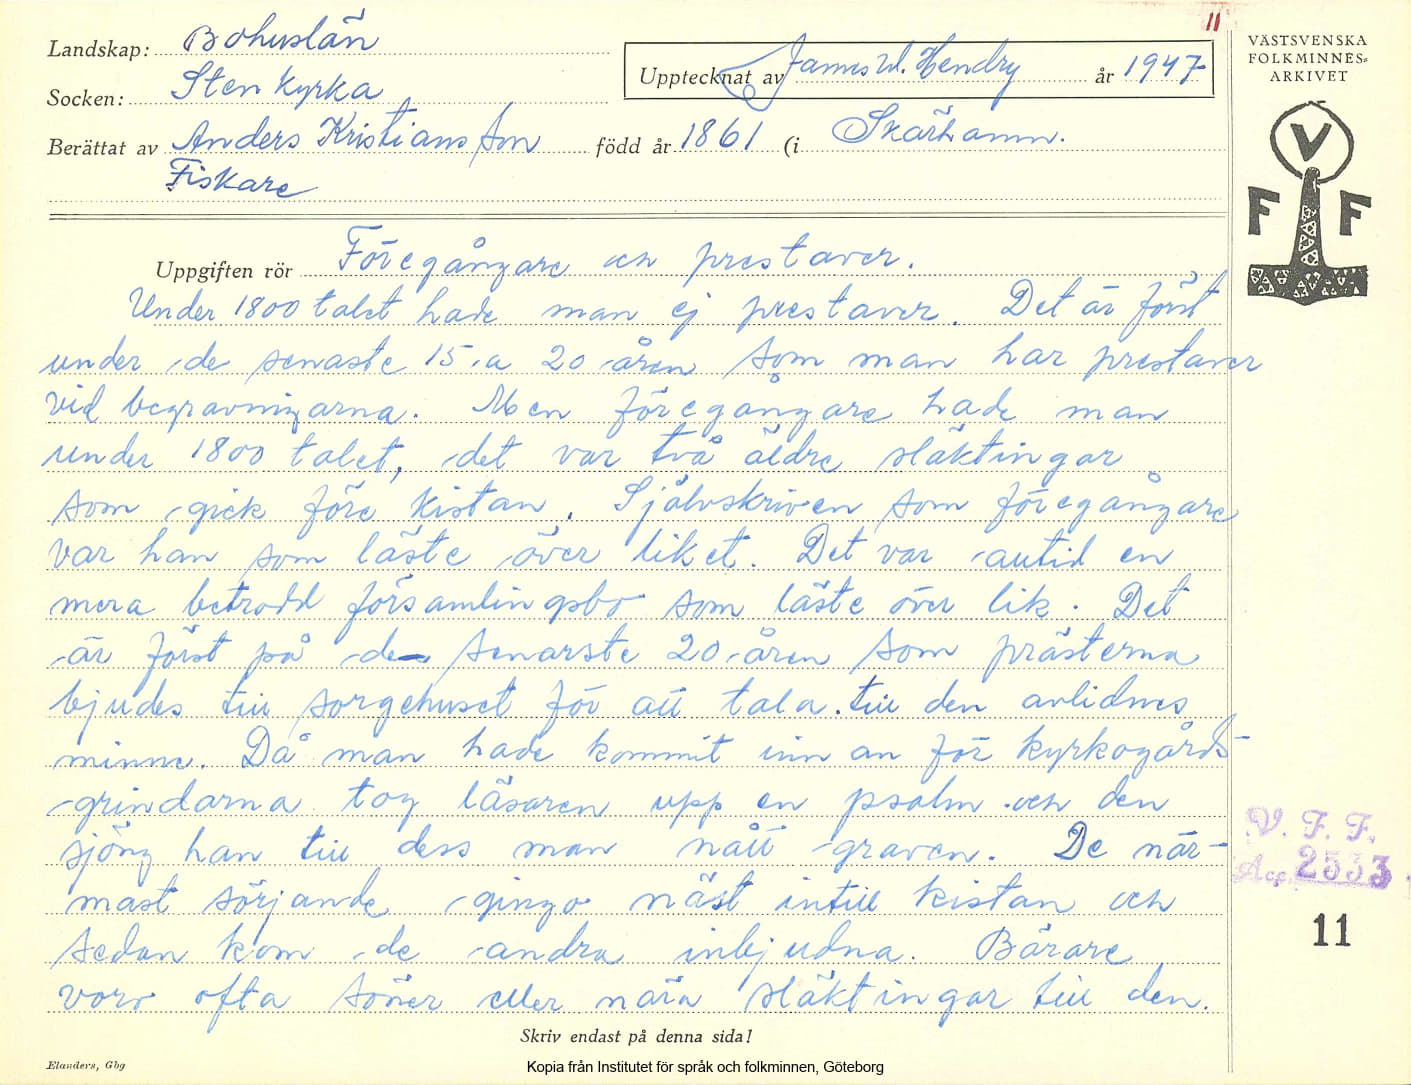 11
Landskap: Bohuslän
Socken: Stenkyrka
Upptecknat av James W. Hendry år 1947
Berättat av Anders Kristiansson född år 1861 (i Skärhamn.
Fiskare
VÄSTSVENSKA
FOLKMINNES-
ARKIVET
V
F F
Uppgiften rör Föregångare och prestaver.
Under 1800 talet hade man ej prestaver. Det är först
under de senaste 15 a 20 åren som man har prestaver
vid begravningarna. Men föregångare hade man
under 1800 talet, det var två äldre släktingar
som gick före kistan. Självskriven som föregångare
var han som läste över liket. Det var alltid en
mera betrodd församlingsbo som läste över lik. Det
är först på de senarste 20 åren som prästerna
bjudes till sorgehuset för att tala till den avlidnes
minne. Då man hade kommit inn an för kyrkogårds-
grindarna tog läsaren upp en psalm och den
sjöng han till dess man nått graven. De när-
mast sörjande gingo näst intill kistan och
sedan kom de andra inbjudna. Bärare
voro ofta söner eller nära släktingar till den.
V. F. F.
Acc. 2533
11
Skriv endast på denna sida!
Elanders, Gbg
Kopia från Institutet för språk och folkminnen, Göteborg